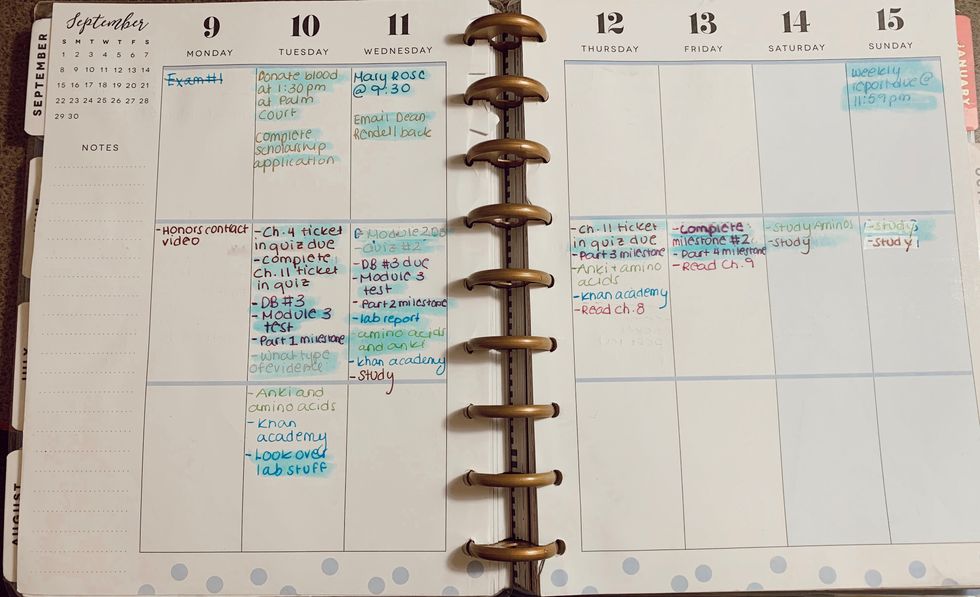 September
S M T W T F S
1 2 3 4 5 6 7
8 9 10 11 12 13 14
15 16 17 18 19 20 21
22 23 24 25 26 27 28
29 30
NOTES
SEPTEMBER
AUGUST
9
MONDAY
Exam #1
-Honors contact
video
10
TUESDAY
Donate blood
at 1:30pm
at Palm
court
complete
scholarship
application
-Ch. 4 ticket
in quiz due
-complete
Ch. 11 ticket
in quiz
-DB #3
-Module 3
test
-Part 1 milestone
-What type
of evidence
-Anki and
amino acids
-Khan
academy
-Look over
lab stuff
11
WEDNESDAY
Mary Rose
@ 9:30
Email Dean
Rendell back
Quiz #2
-DB #3 due
-Module 3
test
-Part 2 milestone
-lab report
-amino acids
and anki
-khan academy
-study
12
THURSDAY
-Ch. 11 ticket
in quiz due
-Part 3 milestone
-Anki + amino
acids
-Khan academy
-Read ch. 8
13
FRIDAY
-complete
milestone #2
-Part 4 milestone
-Read Ch. 9
14
SATURDAY
-study Aminos
-study
15
SUNDAY
weekly
report due @
11:59pm
-study
-study
JANUARY